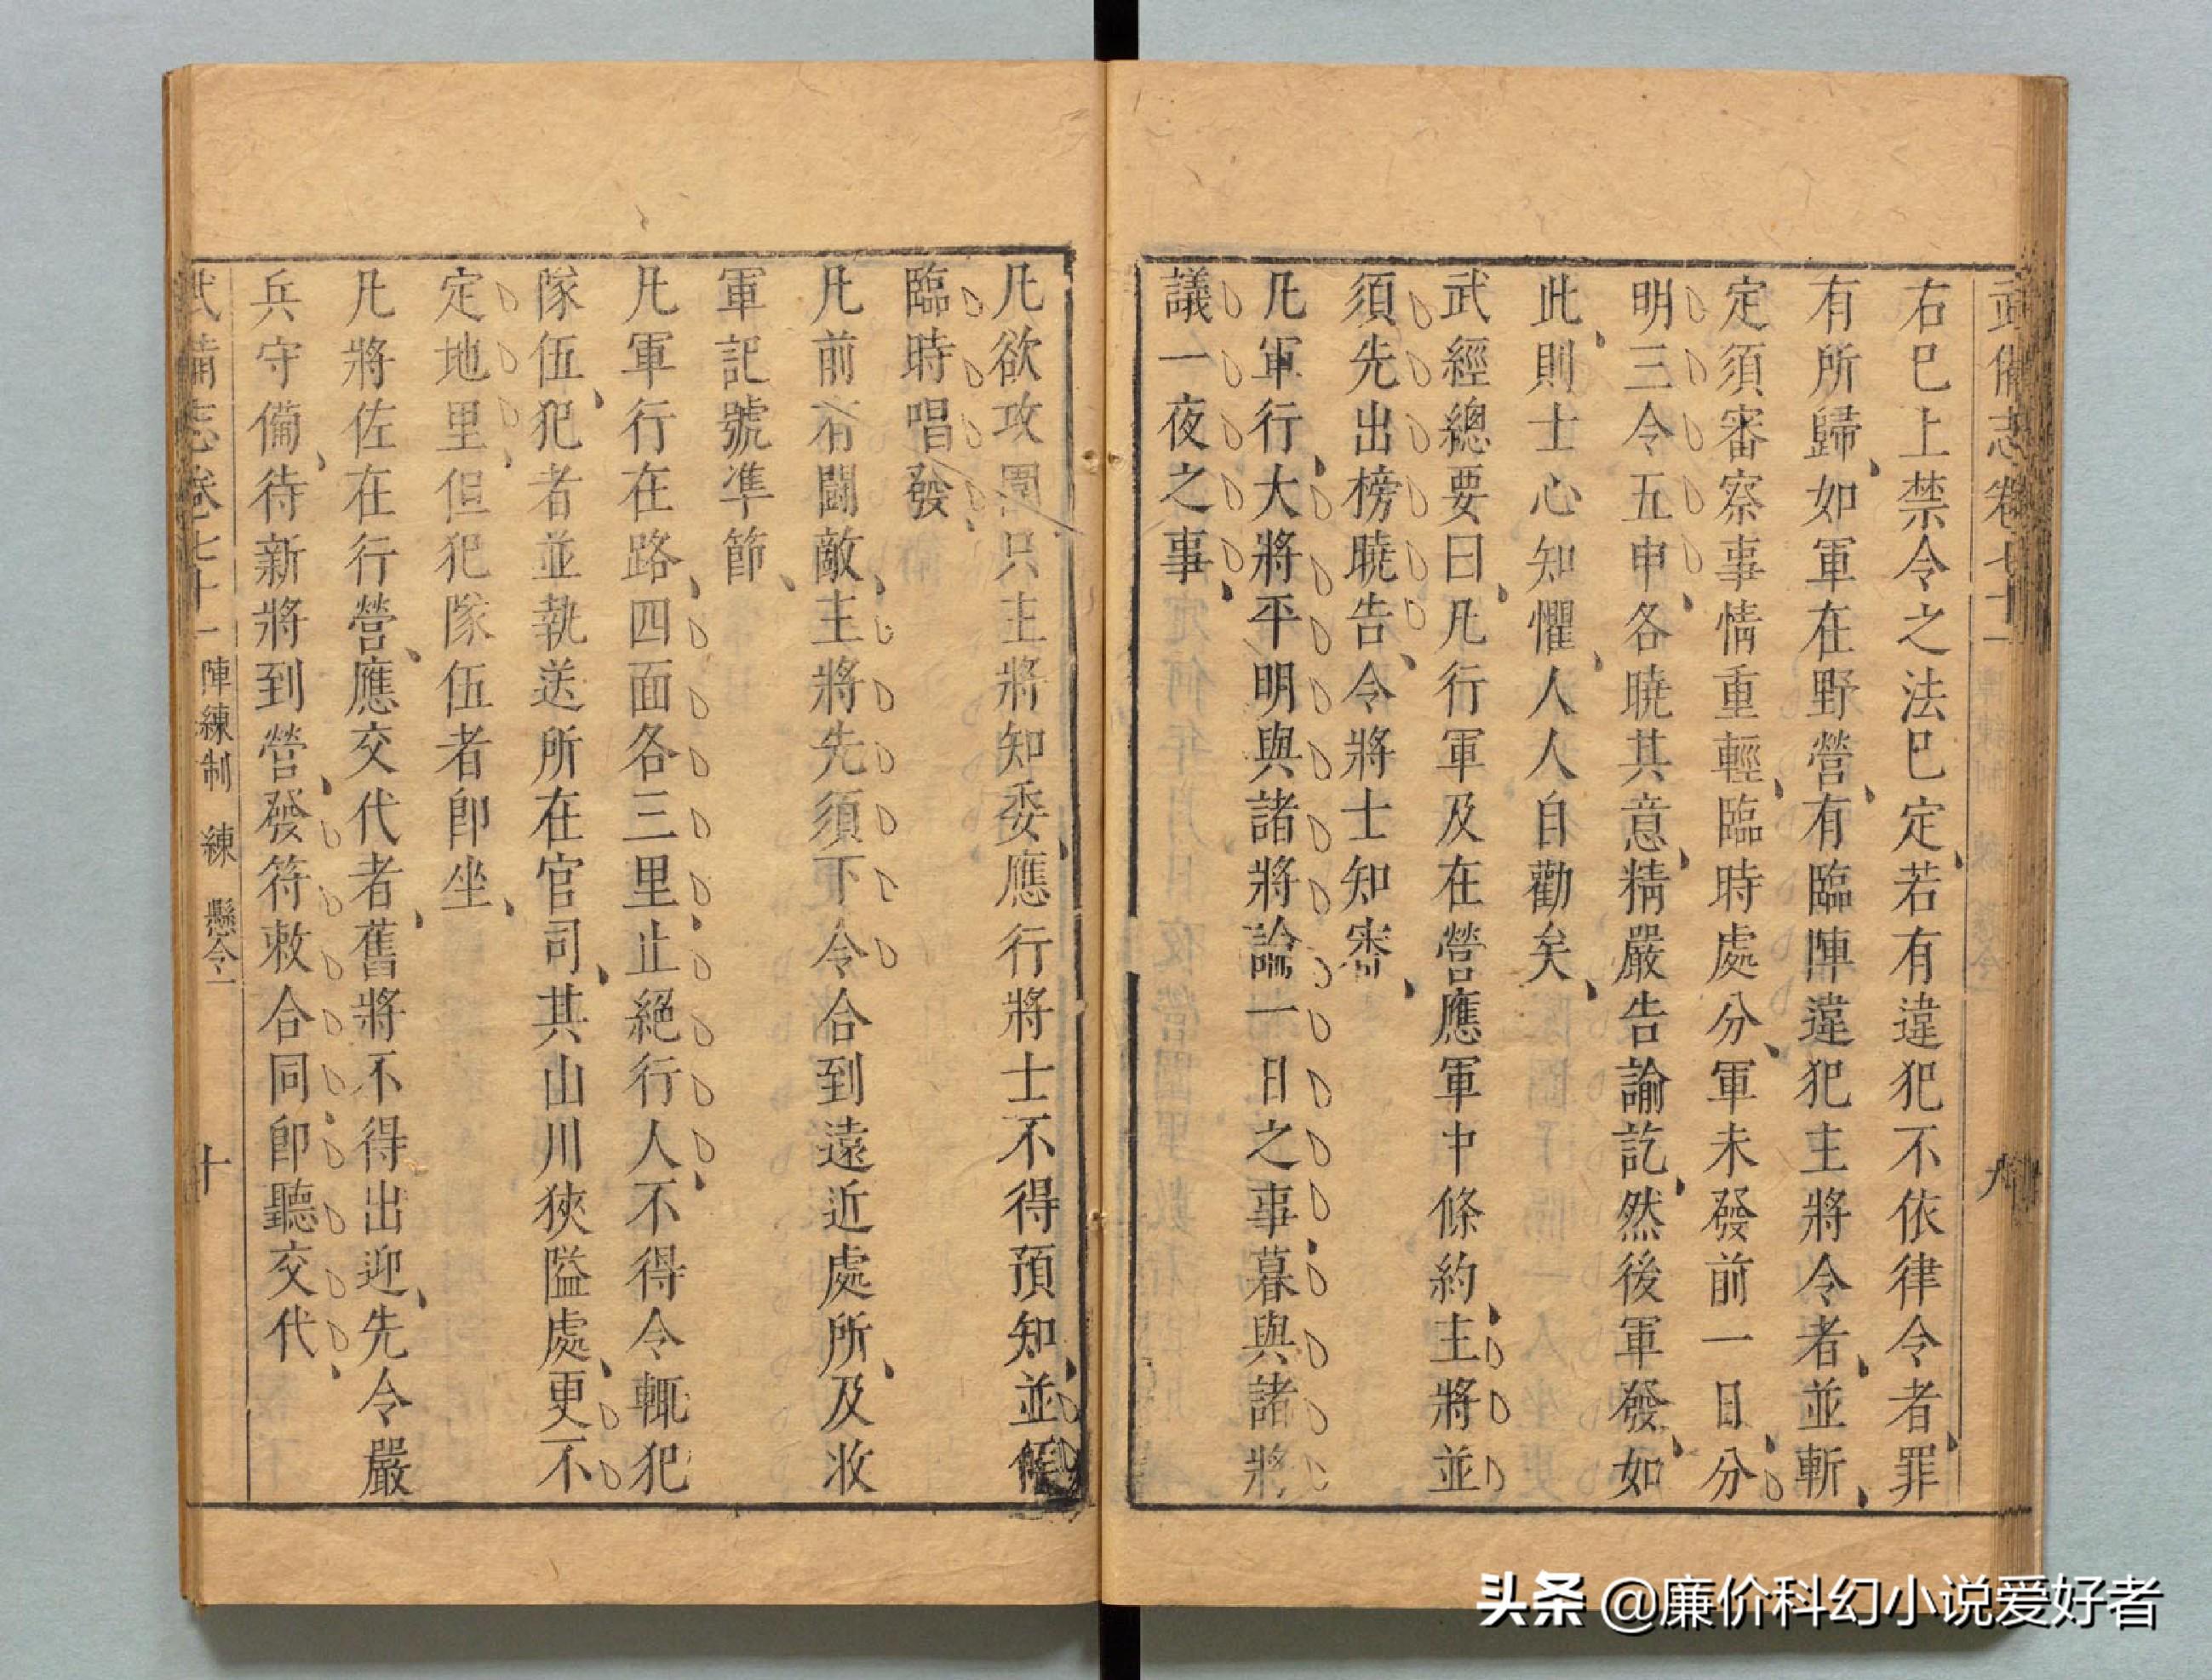 武備志卷七十一
九
右巳上禁令之法巳定若有違犯不依律令者罪
有所歸如軍在野營有臨陣違犯主將令者並斬
定須審察事情重輕臨時處分軍未發前一日分
明三令五申各曉其意精嚴告諭訖然後軍發如
此則士心知懼人人自勸矣
武經總要曰凡行軍及在營應軍中條約主將並
須先出榜曉告令將士知悉
凡軍行大將平明與諸將論一日之事暮與諸將
議一夜之事
凡欲攻圍只主將知委應行將士不得預知並
臨時唱發
凡前有鬬敵主將先須下令合到遠近處所及收
軍記號準節
凡軍行在路四面各三里止絕行人不得令輒犯
隊伍犯者並執送所在官司其山川狹隘處更不
定地里但犯隊伍者卽坐
凡將佐在行營應交代者舊將不得出迎先令嚴
兵守備待新將到營發符敕合同卽聽交代
武備志卷七十一 陣練制 練 懸令一 十
头条 @廉价科幻小说爱好者